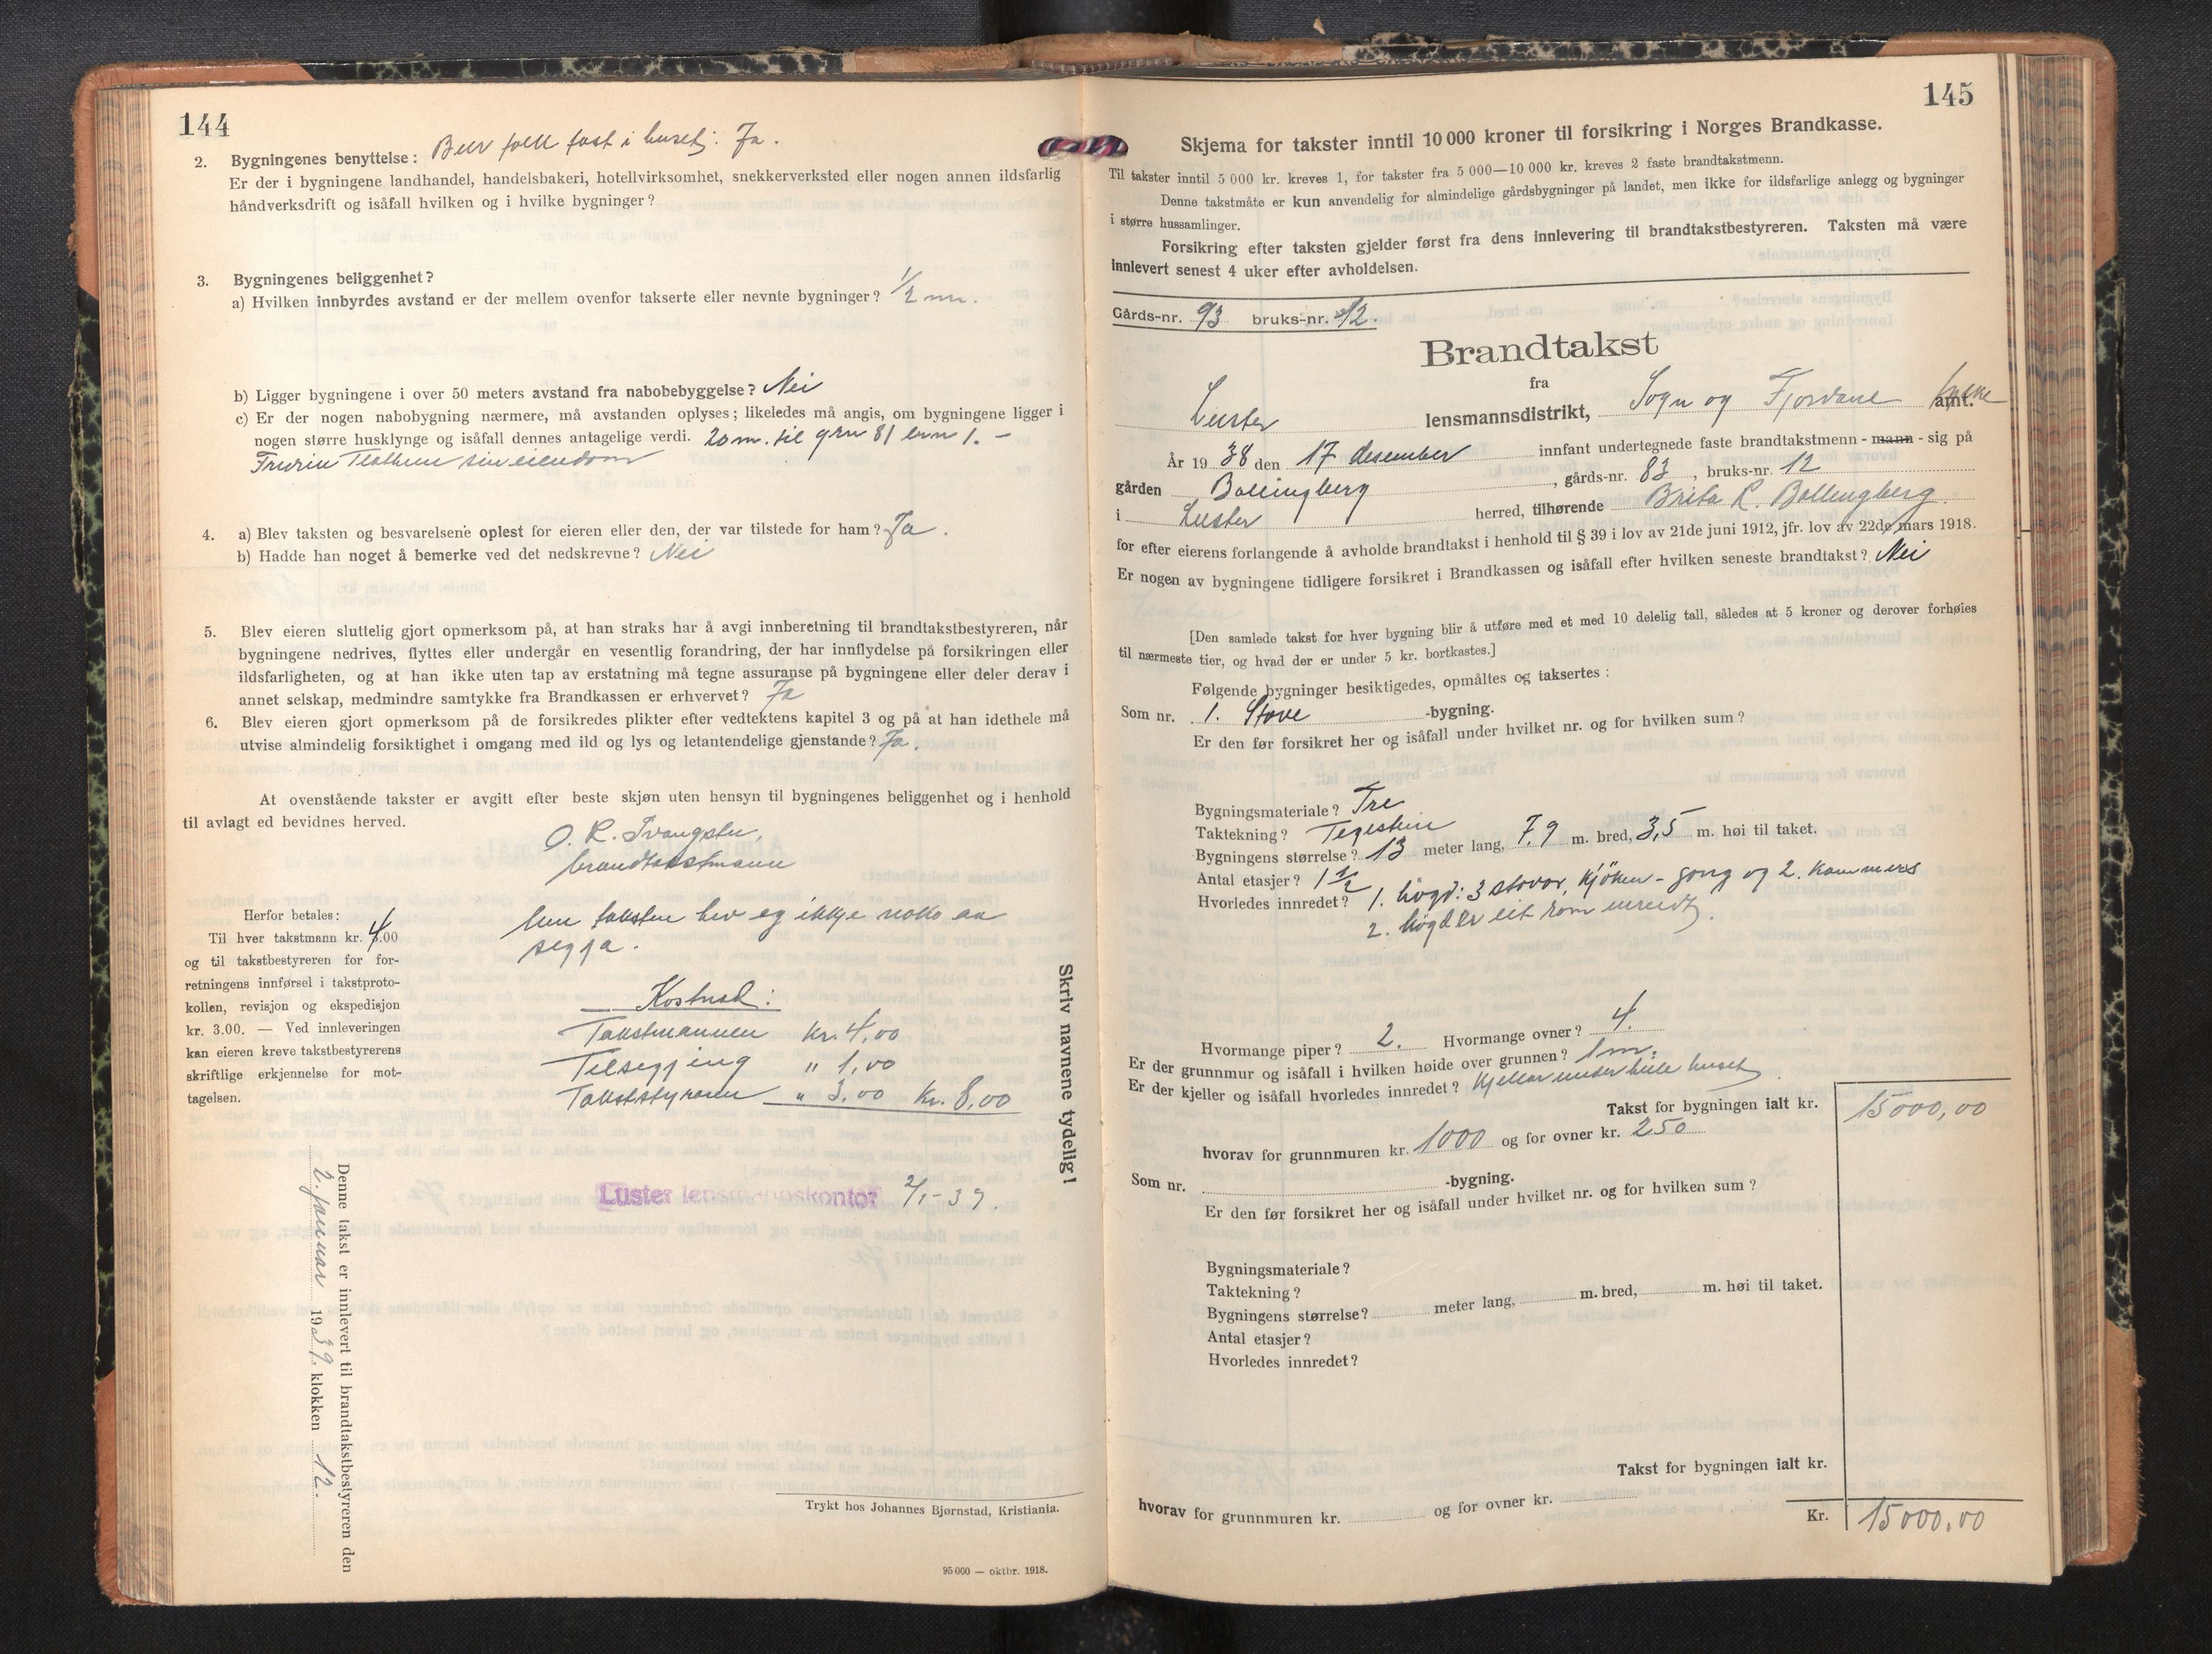 144
2. Bygningenes benyttelse: Bur folk fast i huset: Ja.
Er der i bygningene landhandel, handelsbakeri, hotellvirksomhet, snekkerverksted eller nogen annen ildsfarlig
håndverksdrift og isåfall hvilken og i hvilke bygninger?
3. Bygningenes beliggenhet?
a) Hvilken innbyrdes avstand er der mellem ovenfor takserte eller nevnte bygninger? 1/2 m.
b) Ligger bygningene i over 50 meters avstand fra nabobebyggelse? Nei
c) Er der nogen nabobygning nærmere, må avstanden oplyses; likeledes må angis, om bygningene ligger i
nogen større husklynge og isåfall dennes antagelige verdi. 20 m. til grn 81 brn 1. —
sin eiendom
4. a) Blev taksten og besvarelsene oplest for eieren eller den, der var tilstede for ham? Ja.
b) Hadde han noget å bemerke ved det nedskrevne? Nei
5. Blev eieren sluttelig gjort opmerksom på, at han straks har å avgi innberetning til brandtakstbestyreren, når
bygningene nedrives, flyttes eller undergår en vesentlig forandring, der har innflydelse på forsikringen eller
ildsfarligheten, og at han ikke uten tap av erstatning må tegne assuranse på bygningene eller deler derav i
annet selskap, medmindre samtykke fra Brandkassen er erhvervet? Ja
6. Blev eieren gjort opmerksom på de forsikredes plikter efter vedtektens kapitel 3 og på at han idethele må
utvise almindelig forsiktighet i omgang med ild og lys og letantendelige gjenstande? Ja.
At ovenstående takster er avgitt efter beste skjøn uten hensyn til bygningenes beliggenhet og i henhold
til avlagt ed bevidnes herved.
O. R.
brandtakstmann
Herfor betales:
Til hver takstmann kr. 4.00
og til takstbestyreren for for-
retningens innførsel i takstproto-
kollen, revisjon og ekspedisjon
kr. 3.00. — Ved innleveringen
kan eieren kreve takstbestyrerens
skriftlige erkjennelse for mot-
tagelsen.
taksten hev eg ikkje noko aa
segja.
Kostnad:
Takstmannen Kr. 4,00
Tilsegjing " 1,00
Takststyraren " 3,00 Kr. 8,00
Luster lensmannskontor 2/1-39.
Skriv navnene tydelig!
Denne takst er innlevert til brandtakstbestyreren den
2. januar 1939. klokken 12.
Trykt hos Johannes Bjørnstad, Kristiania.
95 000 — oktbr. 1918.
145
Skjema for takster inntil 10 000 kroner til forsikring i Norges Brandkasse.
Til takster inntil 5 000 kr. kreves 1, for takster fra 5 000—10 000 kr. kreves 2 faste brandtakstmenn.
Denne takstmåte er kun anvendelig for almindelige gårdsbygninger på landet, men ikke for ildsfarlige anlegg og bygninger
i større hussamlinger.
Forsikring efter taksten gjelder først fra dens innlevering til brandtakstbestyreren. Taksten må være
innlevert senest 4 uker efter avholdelsen.
Gårds-nr. 93 bruks-nr. 12.
Brandtakst
fra
Luster lensmannsdistrikt, Sogn og Fjordane fylke amt.
År 1938 den 17 desember innfant undertegnede faste brandtakstmenn - mann - sig på
gården Bollingberg, gårds-nr. 83, bruks-nr. 12
i Luster herred, tilhørende Brita R. Bollingberg
for efter eierens forlangende å avholde brandtakst i henhold til § 39 i lov av 21de juni 1912, jfr. lov av 22de mars 1918.
Er nogen av bygningene tidligere forsikret i Brandkassen og isåfall efter hvilken seneste brandtakst? Nei
[Den samlede takst for hver bygning blir å utføre med et med 10 delelig tall, således at 5 kroner og derover forhøies
til nærmeste tier, og hvad der er under 5 kr. bortkastes.]
Følgende bygninger besiktigedes, opmåltes og taksertes:
Som nr. 1. Stove -bygning.
Er den før forsikret her og isåfall under hvilket nr. og for hvilken sum?
Bygningsmateriale? Tre
Taktekning? Teglstein
Bygningens størrelse? 13 meter lang, 7,9 m. bred, 3,5 m. høi til taket.
Antal etasjer? 1 1/2
Hvorledes innredet? 1. høgd: 3 stovor, kjøken - gong og 2. kammers
2. høgd er eit rom innreidt.
Hvormange piper? 2. Hvormange ovner? 4.
Er der grunnmur og isåfall i hvilken høide over grunnen? 1 m.
Er der kjeller og isåfall hvorledes innredet? Kjellar under heile huset.
Takst for bygningen ialt kr. 15000,00
hvorav for grunnmuren kr. 1000 og for ovner kr. 250
Som nr. -bygning.
Er den før forsikret her og isåfall under hvilket nr. og for hvilken sum?
Bygningsmateriale?
Taktekning?
Bygningens størrelse? meter lang, m. bred, m. høi til taket.
Antal etasjer?
Hvorledes innredet?
Takst for bygningen ialt kr.
hvorav for grunnmuren kr. og for ovner kr.
Kr. 15000,00